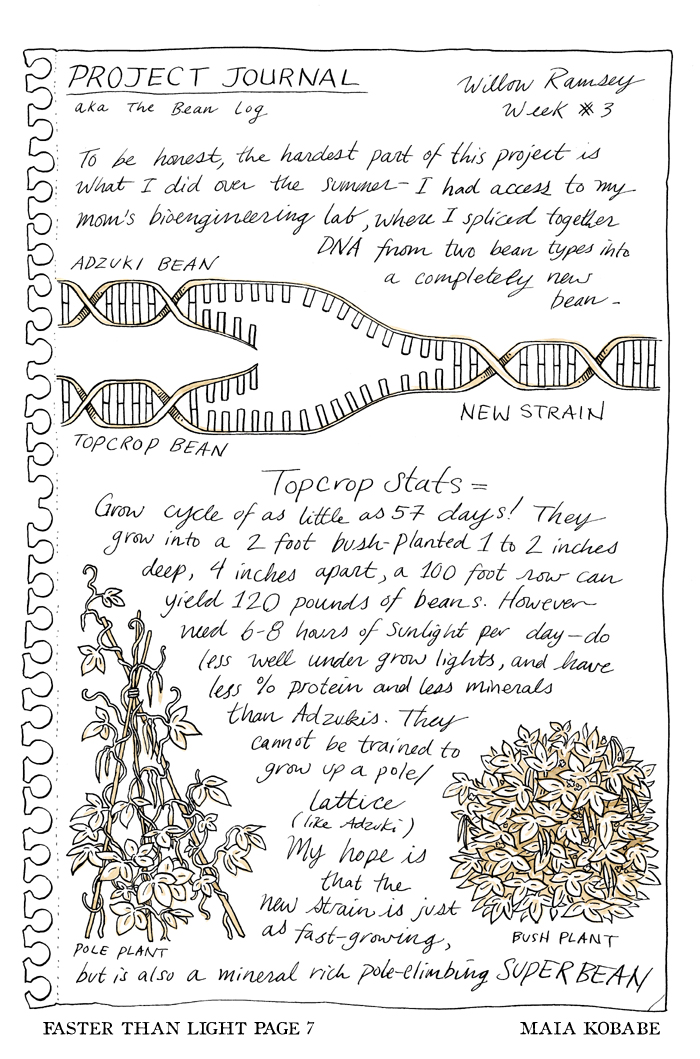 PROJECT JOURNAL
aka The Bean Log
Willow Ramsey
Week #3
To be honest, the hardest part of this project is
what I did over the summer- I had access to my
mom's bioengineering lab, where I spliced together
DNA from two bean types into
a completely new
bean-
ADZUKI BEAN
TOPCROP BEAN
NEW STRAIN
Topcrop Stats =
Grow cycle of as little as 57 days! They
grow into a 2 foot bush-planted 1 to 2 inches
deep, 4 inches apart, a 100 foot row can
yield 120 pounds of beans. However
need 6-8 hours of sunlight per day-do
less well under grow lights, and have
less % protein and less minerals
than Adzukis. They
cannot be trained to
grow up a pole/
lattice
(like Adzuki)
My hope is
that the
new strain is just
as fast-growing,
but is also a mineral rich pole-climbing SUPER BEAN
POLE PLANT
BUSH PLANT
FASTER THAN LIGHT PAGE 7
MAIA KOBABE